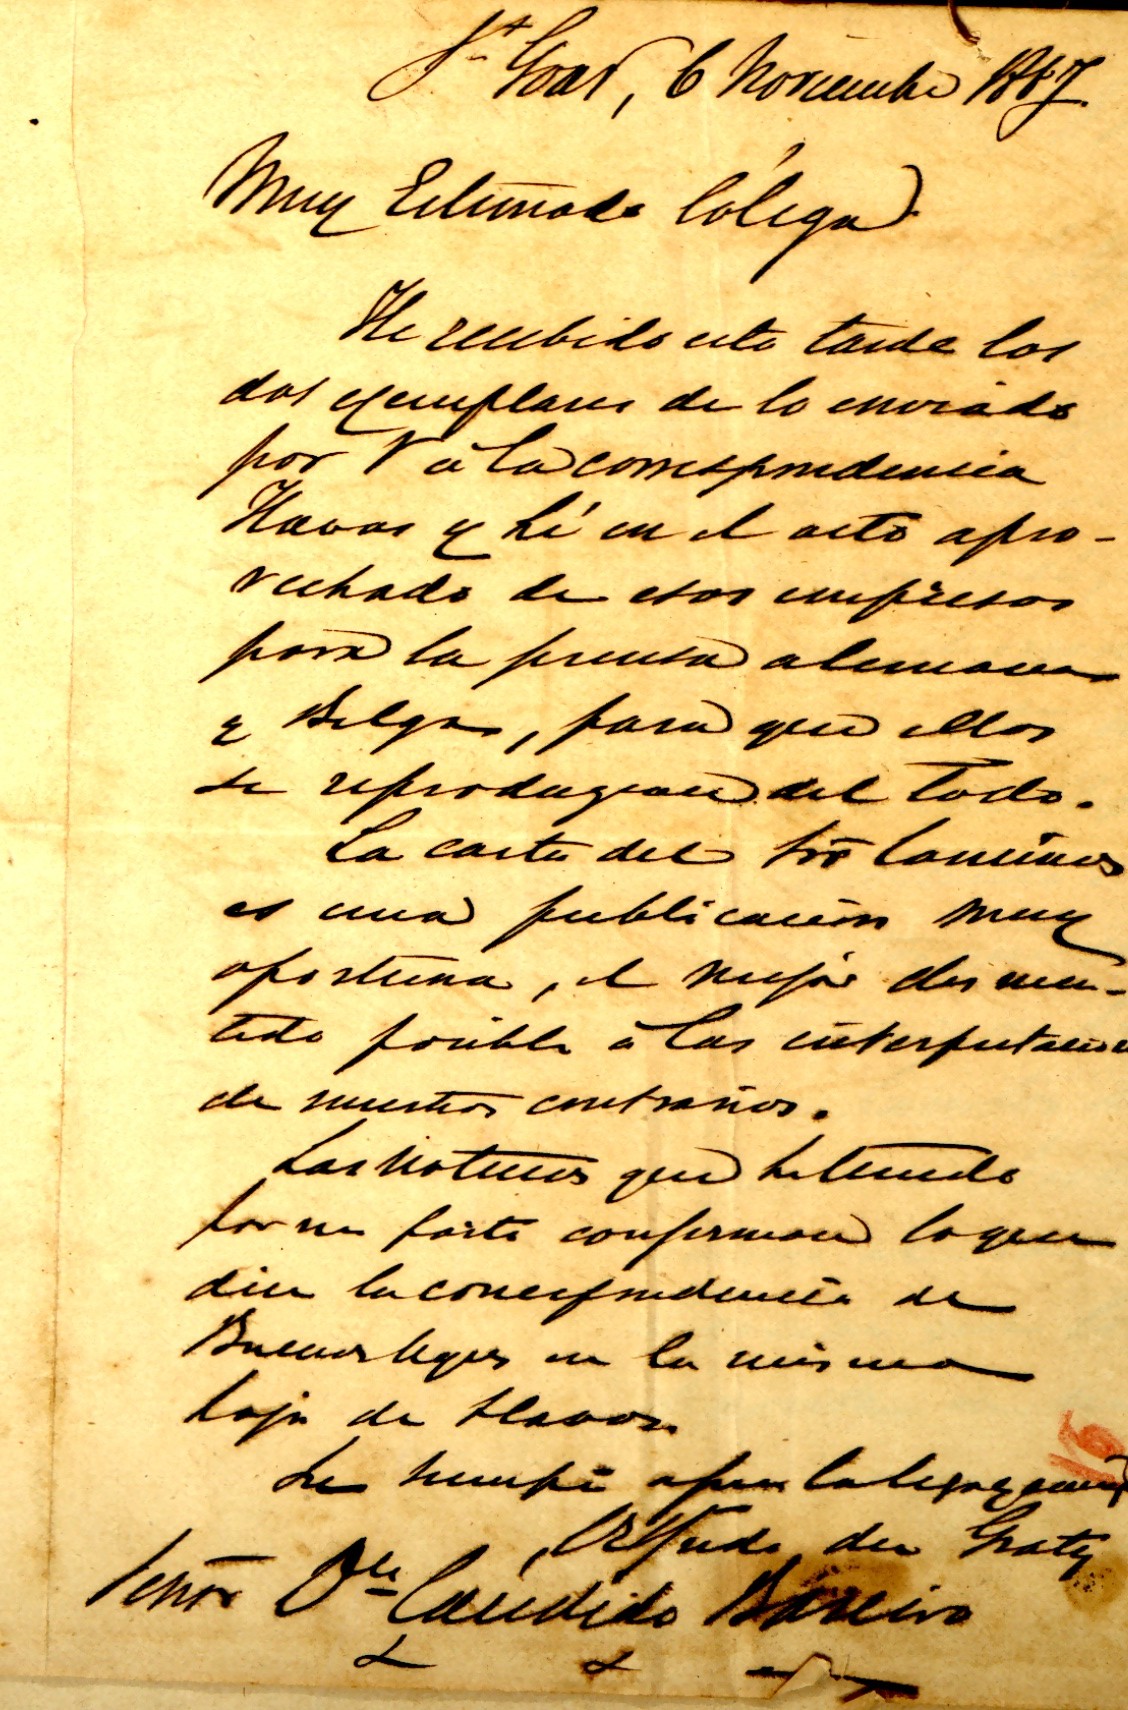 St Goar, 6 Noviembre 1867
Muy Estimado Cólega
He recebido esta tarde los
dos ejemplares de lo enviado
por V a la correspondencia
Havas y hé en el acto apro-
vechado de esos impresos
para la prensa alemana
y Belga, para que ellos
se reproduzcan del todo.
La carta del Sor Caminos
es una publicación muy
oportuna, el mejor desmen-
tido posible à las interpretacion
de nuestros contrarios.
Las Noticias que he tenido
por mi parte confirman lo que
dice la correspondencia de
Buenos Ayres en la misma
hoja de Havas.
Su siempre afmo colega y
Alfredo du Graty
Señor Dn Cándido Bareiro